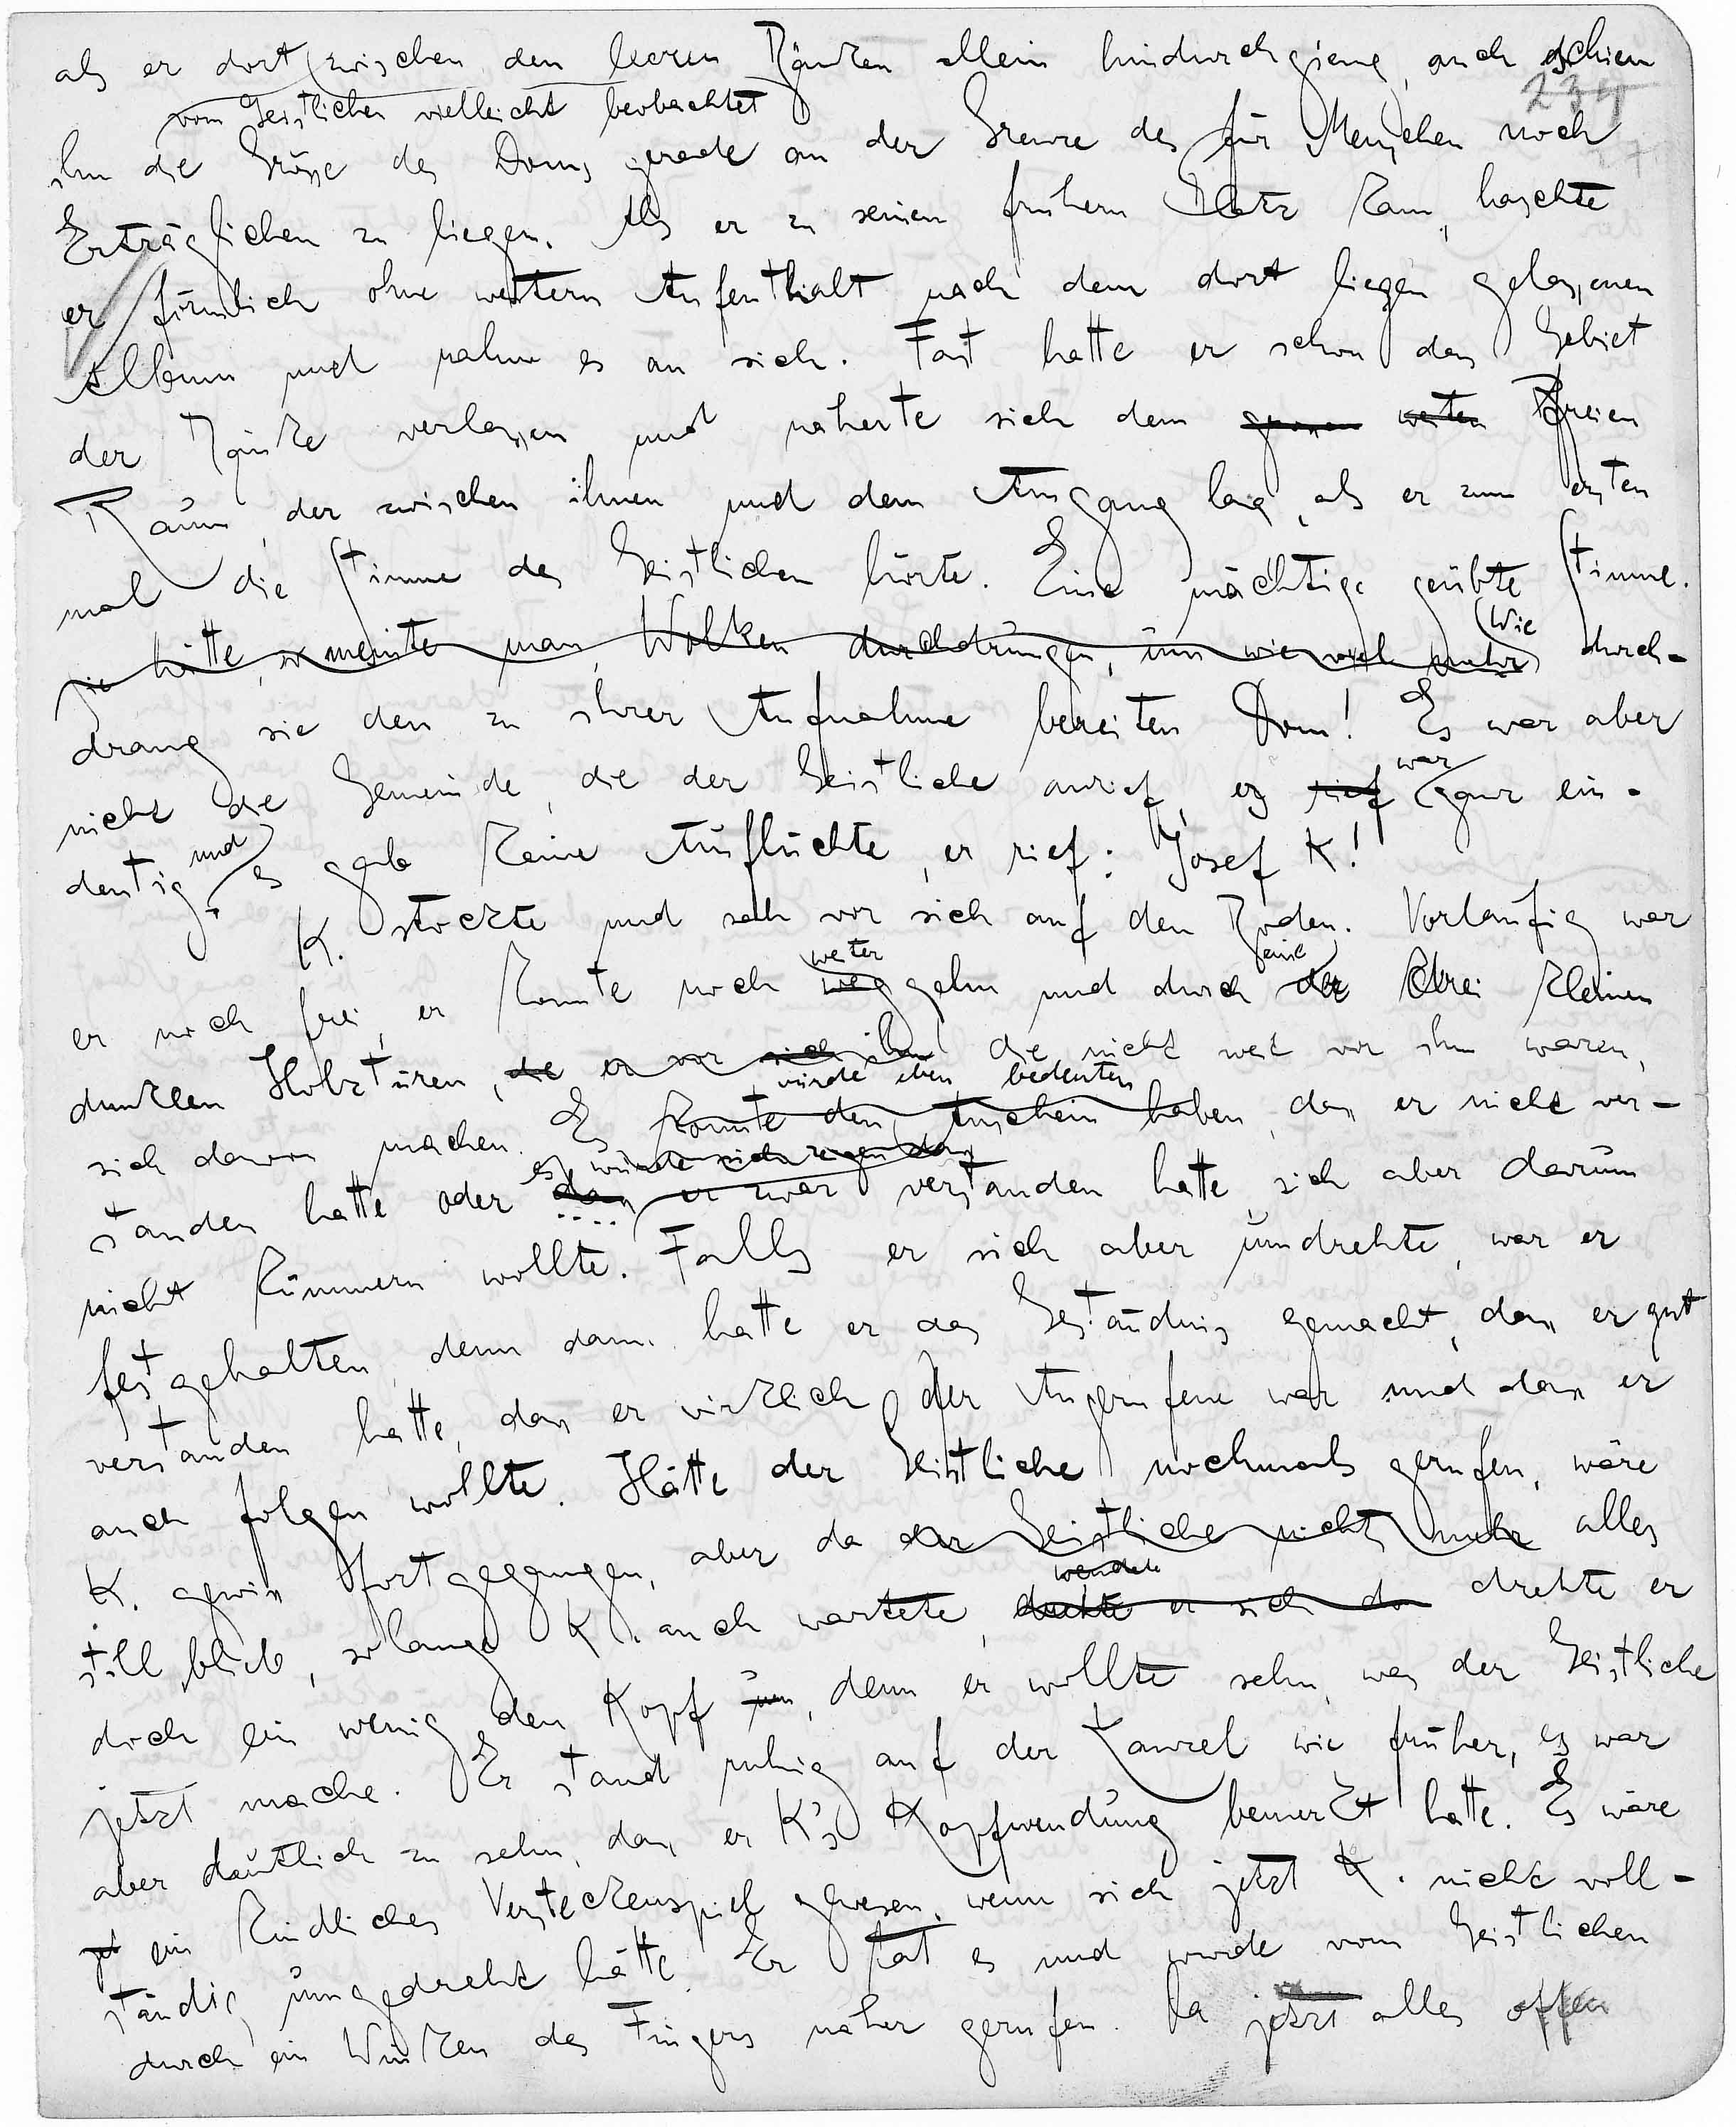 als er dort zwischen den leeren Bänken allein hindurchgieng, auch schien
234
vom Geistlichen vielleicht beobachtet
ihm die Größe des Doms gerade an der Grenze des für Menschen noch
Erträglichen zu liegen. Als er zu seinem frühern Platz kam, haschte
er förmlich ohne weitern Aufenthalt nach dem dort liegen gelassenen
Album und nahm es an sich. Fast hatte er schon das Gebiet
der Bänke verlassen und näherte sich dem grossen weiten freien
Raum, der zwischen ihnen und dem Ausgang lag, als er zum ersten
mal die Stimme des Geistlichen hörte. Eine mächtige geübte Stimme.
Wie
sie hätte, so meinte man, Wolken durchdrungen, um wie viel mehr durch-
drang sie den zu ihrer Aufnahme bereiten Dom! Es war aber
war
nicht die Gemeinde, die der Geistliche anrief, es rief ganz ein-
und
deutig es gab keine Ausflüchte, er rief: Josef K!
K. stockte und sah vor sich auf den Boden. Vorläufig war
weiter eine
er noch frei, er konnte noch weg gehn und durch der drei kleinen
dunklen Holztüren, die er vor sich ihm die nicht weit vor ihm waren,
würde eben bedeuten
sich davon machen. Es konnte den Anschein haben, dass er nicht ver-
es würde sich zeigen dass
standen hatte oder dass er zwar verstanden hatte, sich aber darum
nicht kümmern wollte. Falls er sich aber umdrehte, war er
festgehalten, denn dann hatte er das Geständnis gemacht, dass er gut
verstanden hatte, dass er wirklich der Angerufene war und dass er
auch folgen wollte. Hätte der Geistliche nochmals gerufen, wäre
K. gewiss fortgegangen, aber da der Geistliche nicht mehr alles
wendete
still blieb, solange K. auch wartete, drehte er sich da drehte er
doch ein wenig den Kopf um, denn er wollte sehn, was der Geistliche
jetzt mache. Er stand ruhig auf der Kanzel wie früher, es war
aber deutlich zu sehn, dass er K's Kopfwendung bemerkt hatte. Es wäre
ein kindliches Versteckenspiel gewesen, wenn sich jetzt K. nicht voll-
ständig umgedreht hätte. Er tat es und wurde vom Geistlichen
durch ein Winken des Fingers näher gerufen. Da jetzt alles offen